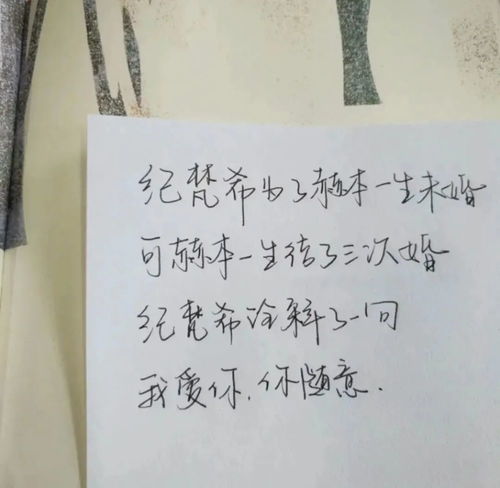 纪梵希为了赫本一生未婚
可赫本一生结了三次婚
纪梵希诠释了一句
我爱你,你随意.